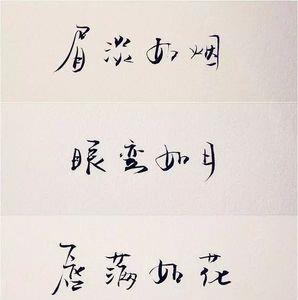 眉淡如烟
眼弯如月
唇薄如花